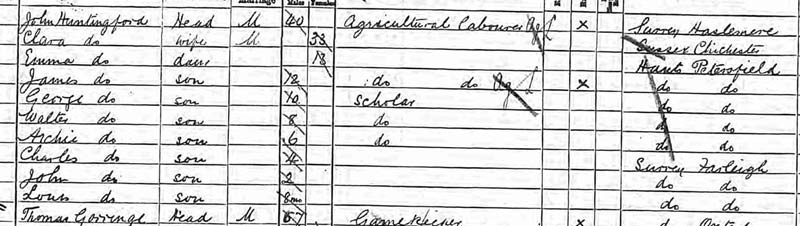 John Huntingford Head M 40 Agricultural Labourer Ag L x Surrey Haslemere
Clara do wife M 33 Sussex Chichester
Emma do daur 13 Hants Petersfield
James do son 12 do do Ag L x do do
George do son 10 Scholar do do
Walter do son 8 do do do
Archie do son 6 do do do
Charles do son 4 Surrey Farleigh
John do son 2 do do
Louis do son 8mo do do
Thomas Gorrenge Head M 67 Gamekeeper x do